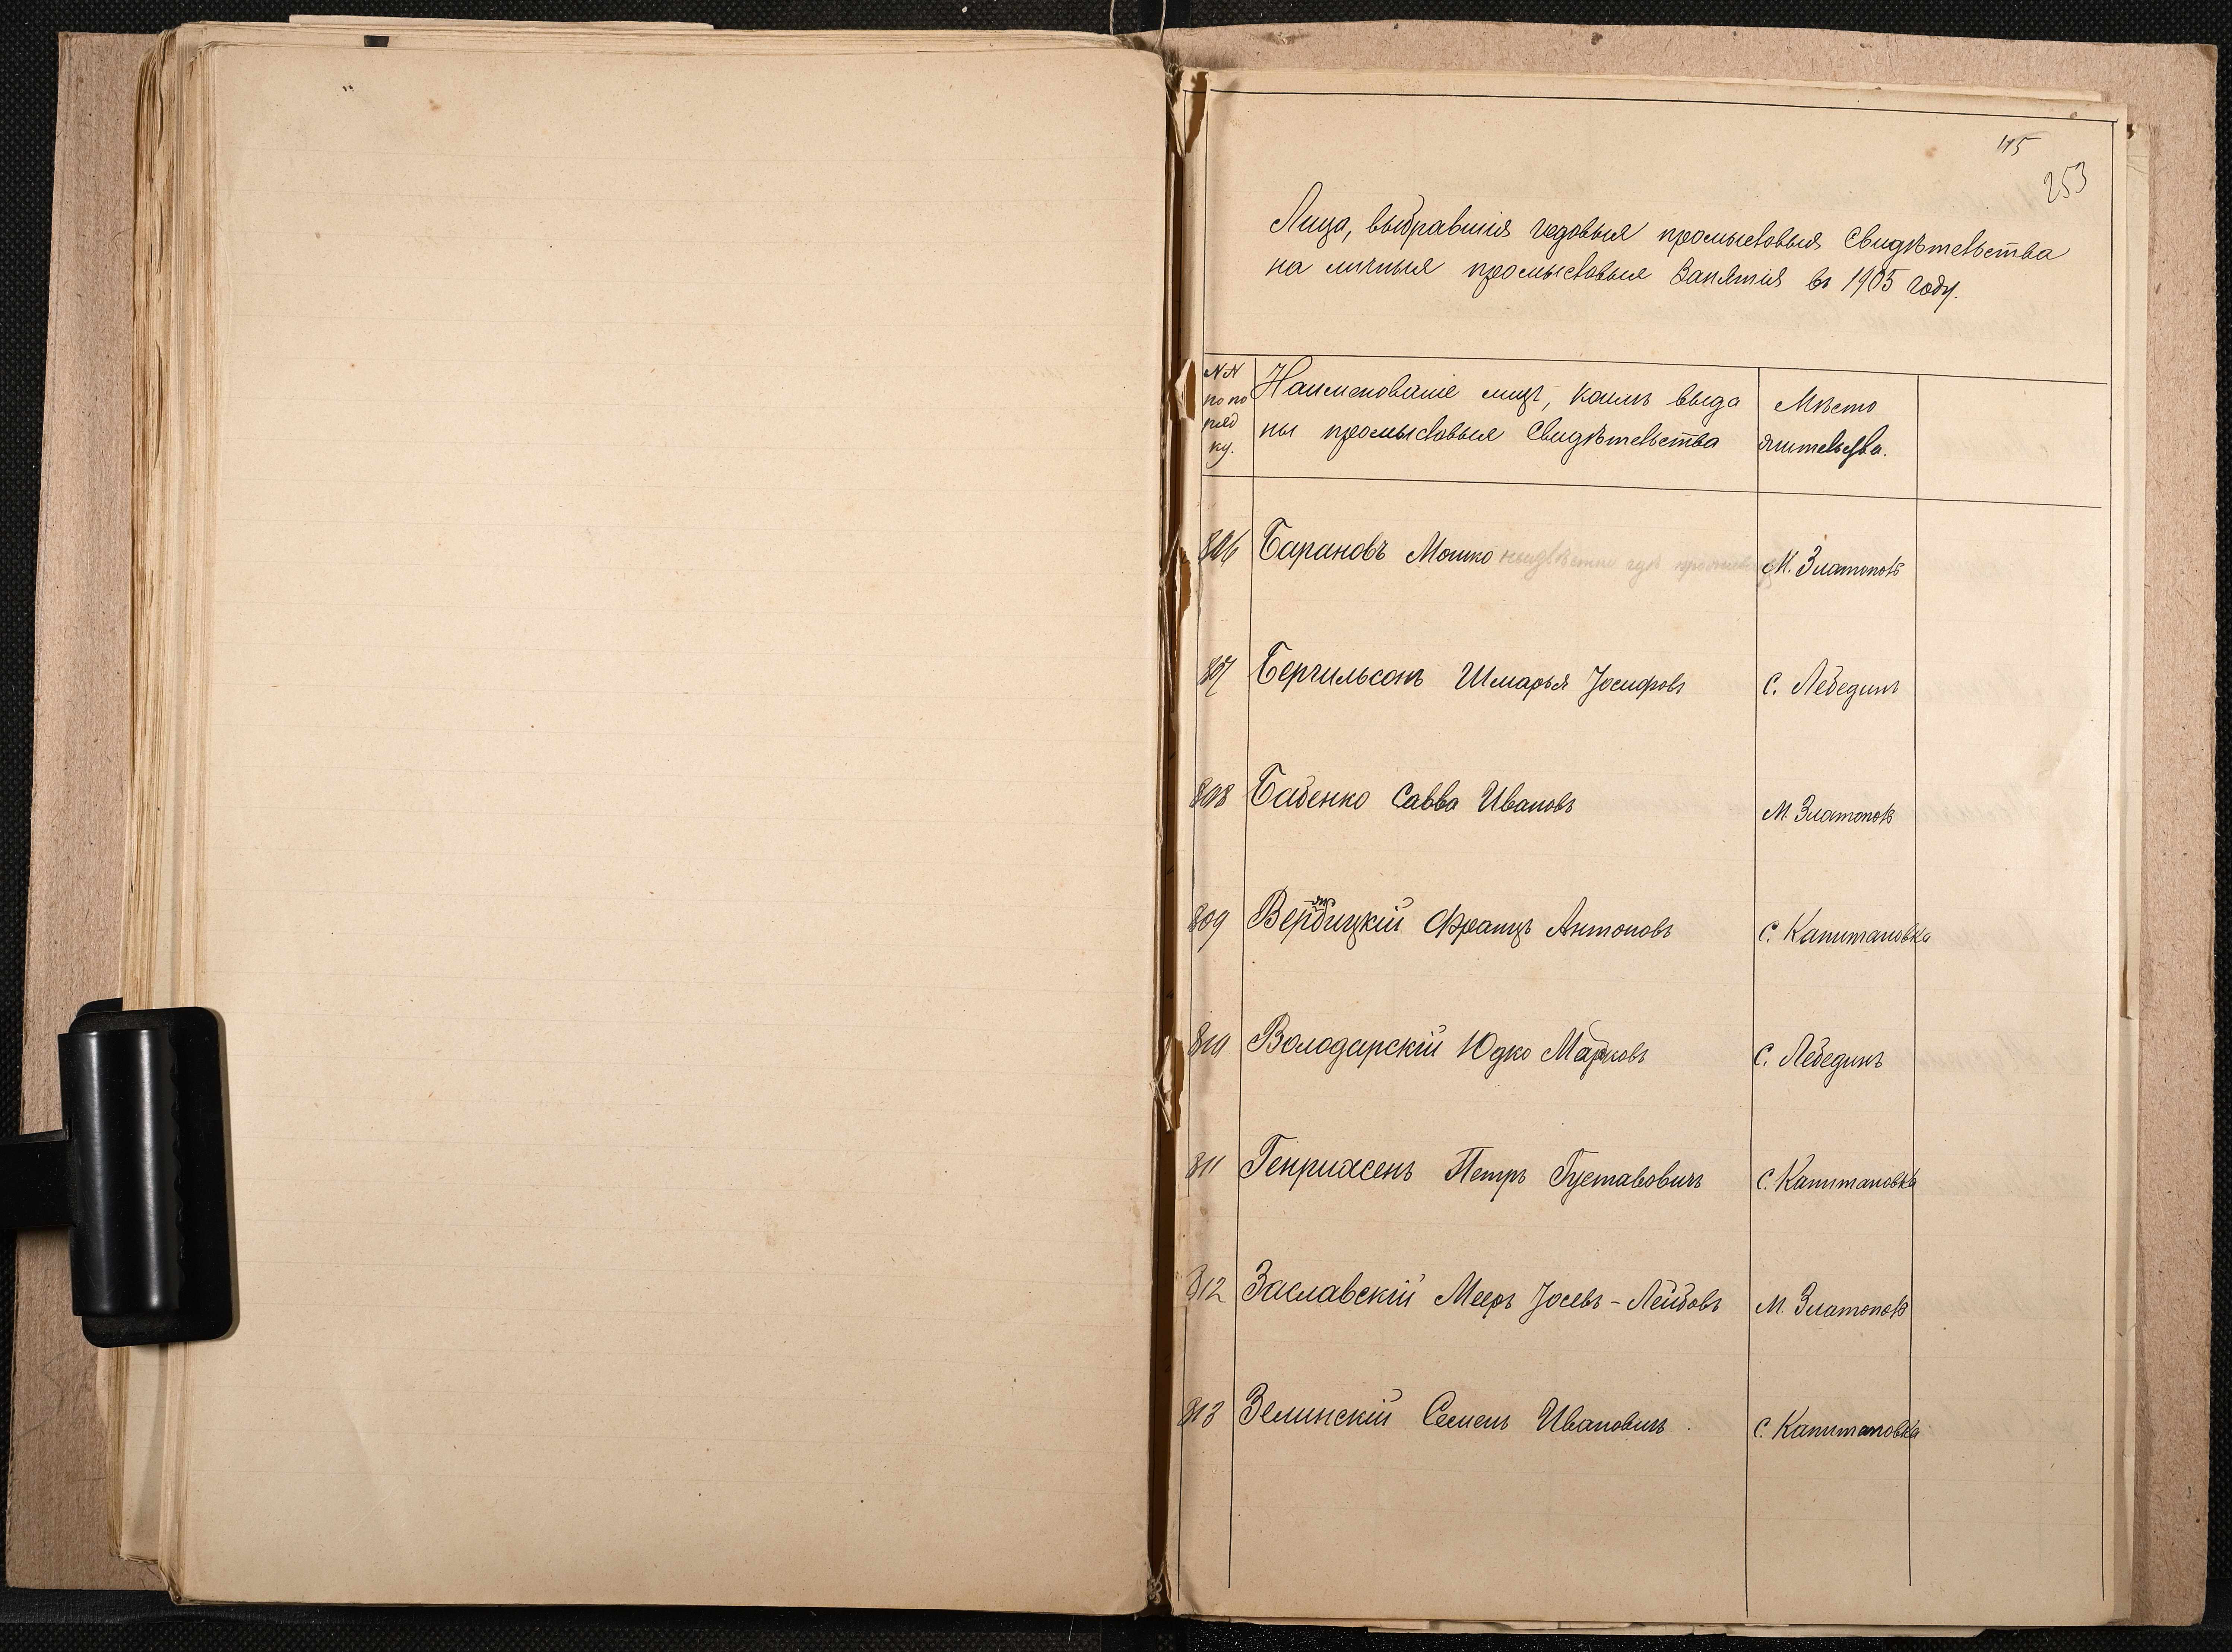 115
253
Лица, выбравшія годовыя промысловыя свидѣтельства
на личныя промысловыя занятія въ 1905 году.
NN по порядку.
Наименованіе лицъ, коимъ выда
ны промысловыя свидѣтельства
Мѣсто
жительства.
806 Барановъ Мошко неизвѣстно гдѣ М. Златополь
807 Бергильсонъ Шмарья Іосифовъ С. Лебединъ
808 Бабенко Савва Ивановъ М. Златополь
809 Вербицкій Францъ Антоновъ С. Капитановка
810 Володарскій Юдко Марковъ С. Лебединъ
811 Генриксенъ Петръ Густавовичъ С. Капитановка
812 Заславскій Мееръ Іосевъ-Лейбовъ М. Златополь
813 Зелинскій Семенъ Ивановичъ С. Капитановка